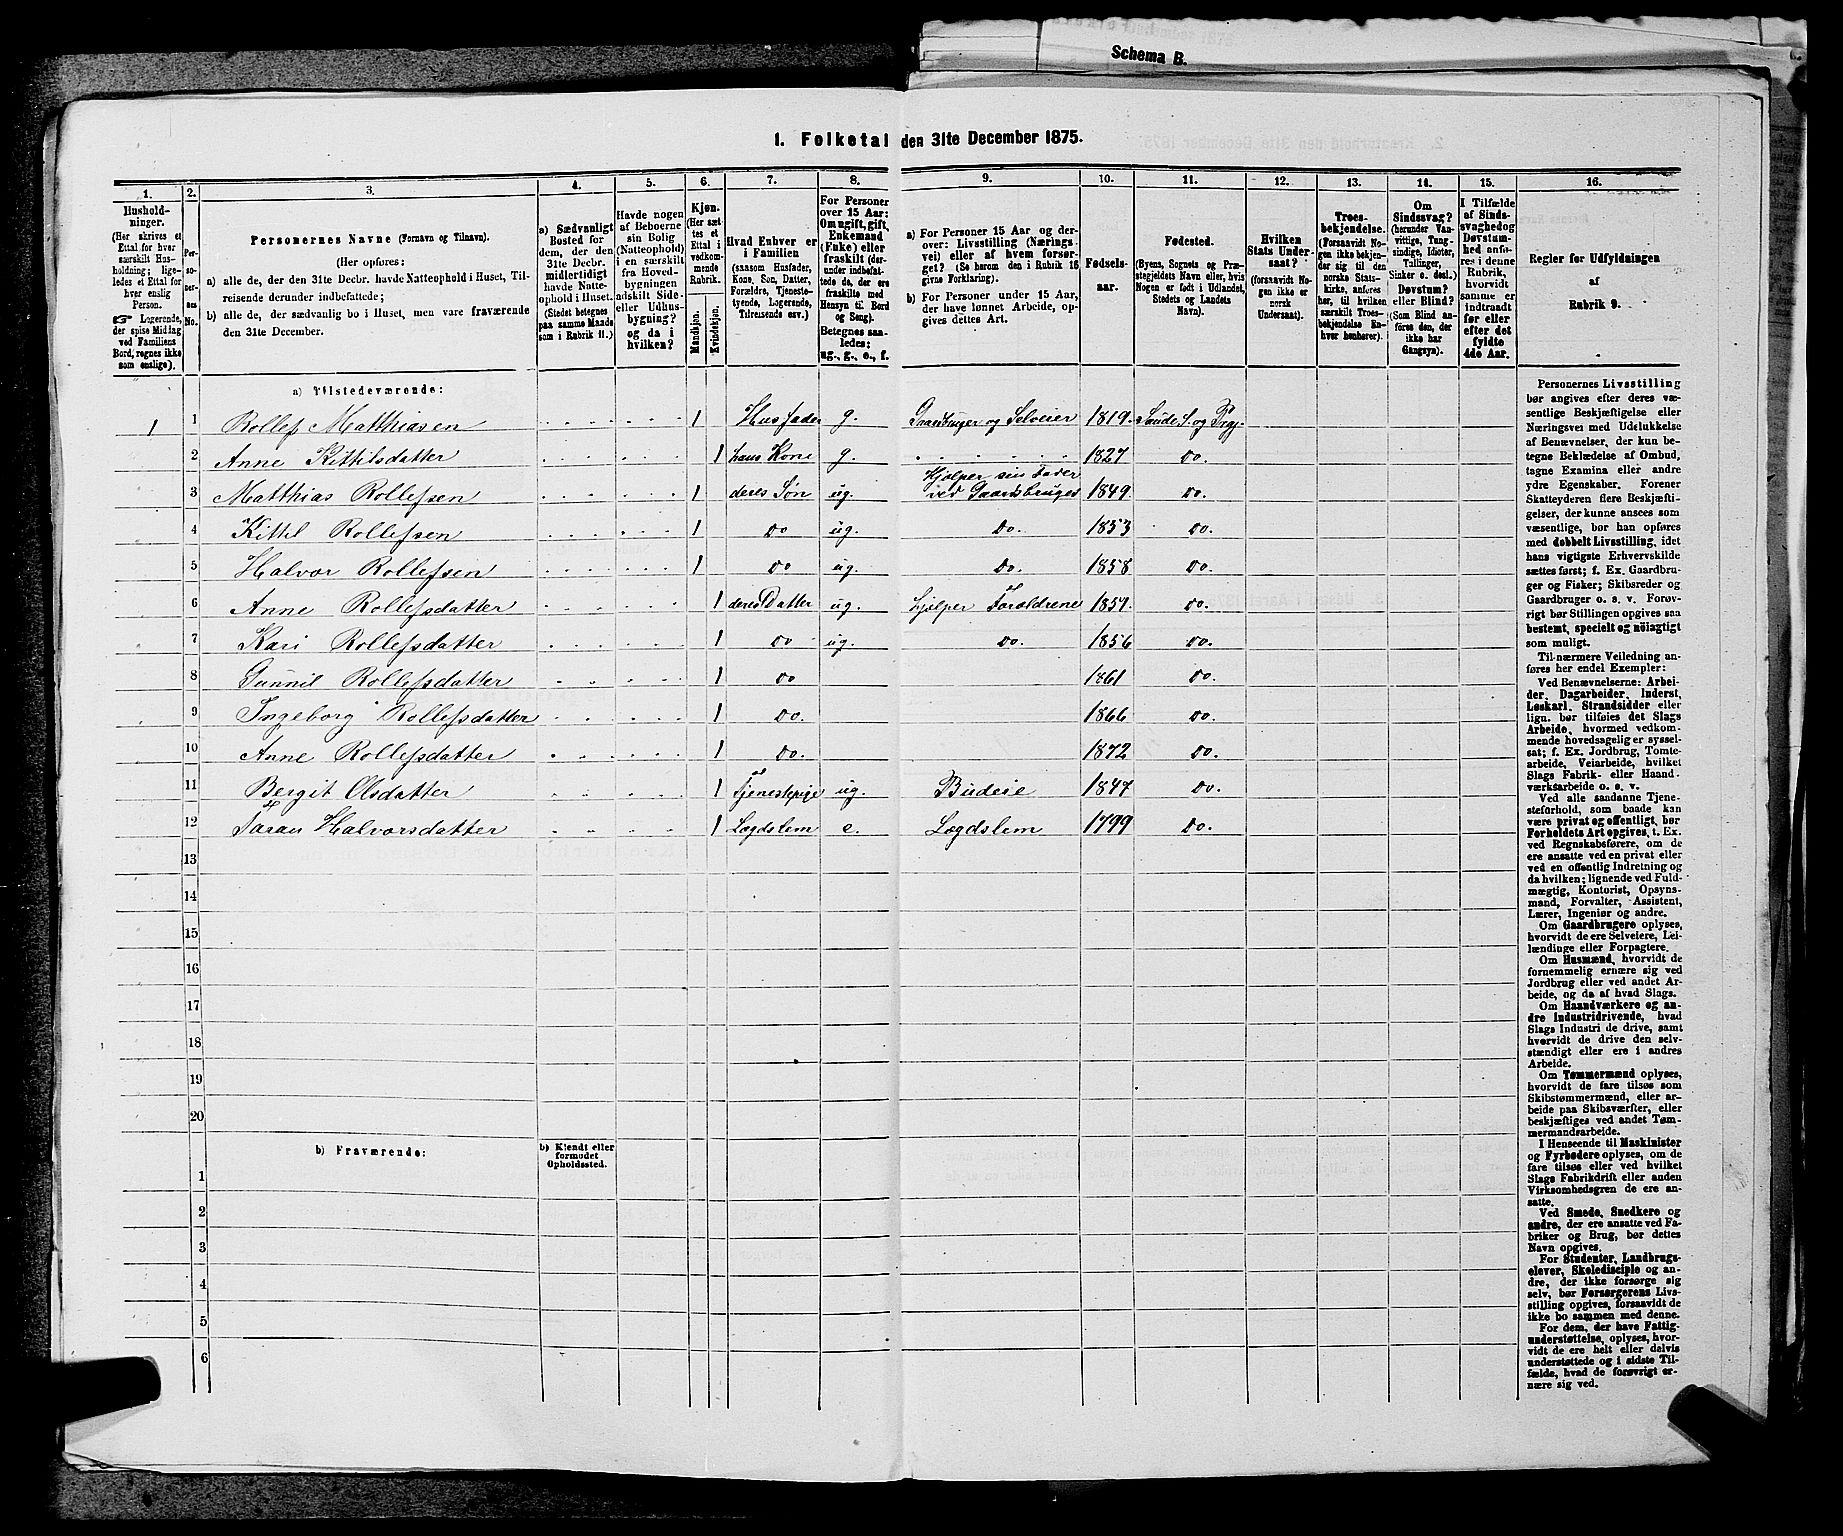 Schema B.
1. Folketal den 31te December 1875.
1. 2. 3. 4. 5. 6. 7. 8. 9. 10. 11. 12. 13. 14. 15. 16.
Hushold-
ninger.
(Her skrives et
Ettal for hver
særskilt Hus-
holdning; lige-
ledes et Ettal for
hver enslig
Person.
☞ Logerende,
der spise Middag
ved Familiens
Bord, regnes ikke
som enslige).
Per-
so-
ner-
nes
No.
Personernes Navne (Fornavn og Tilnavn).
(Her opføres:
a) alle de, der den 31te Decbr. havde Natteophold i Huset, Til-
reisende derunder indbefattede;
b) alle de, der sædvanlig bo i Huset, men vare fraværende
den 31te December.
a) Sædvanligt
Bosted for
dem, der den
31te Decbr.
midlertidigt
havde Natte-
ophold i Huset.
(Stedet betegnes
paa samme Maade
som i Rubrik 11.)
Havde nogen
af Beboerne
sin Bolig
(Natteophold)
i en særskilt
fra Hoved-
bygningen
adskilt Side-
eller Udhus-
bygning?
og da i
hvilken?
Kjøn.
(Her sæt-
tes et
Ettal i
vedkom-
mende
Rubrik.
Mandskjøn.
Kvindekjøn.
Hvad Enhver er
i Familien
(saasom Husfader,
Kone, Søn, Datter,
Forældre, Tjeneste-
tyende, Logerende,
Tilreisende osv.)
For Personer
over 15 Aar:
Om ugift, gift,
Enkemand
(Enke) eller
fraskilt (der-
under indbefat-
tede de, der ere
fraskilte med
Hensyn til Bord
og Seng).
Betegnes saa-
ledes:
ug., g., e., f.
a) For Personer 15 Aar og der-
over: Livsstilling (Nærings-
vei) eller af hvem forsør-
get? (Se herom den i Rubrik 16
givne Forklaring).
b) For Personer under 15 Aar,
der have lønnet Arbeide, op-
gives dettes Art.
Fødsels-
aar.
Fødested.
(Byens, Sognets og Præ-
stegjeldets Navn eller, hvis
Nogen er født i Udlandet,
Stedets og Landets
Navn).
Hvilken
Stats Under-
saat?
(forsaavidt No-
gen ikke er
norsk
Undersaat).
Troes-
bekjendelse.
(Forsaavidt No-
gen ikke bekjen-
der sig til den
norske Stats-
kirke, anføres
her, til hvilken
særskilt Troes-
bekjendelse En-
hver henhører).
Om
Sindssvag?
(herunder Van-
vittige, Tung-
sindige, Idioter,
Tullinger,
Sinker o. desl.)
Døvstum?
eller Blind?
(Som Blind an-
føres den, der
ikke har
Gangsyn).
I Tilfælde
af Sinds-
svaghed og
Døvstum-
hed anfø-
res i denne
Rubrik,
hvorvidt
samme er
indtraadt
før eller
efter det
fyldte
4de Aar.
Regler for Udfyldningen
af
Rubrik 9.
a) Tilstedeværende:
1 1 Rollef Matthiasen 1 Husfader g. Gaardbruger og Selveier 1819. Saude S. og Prgj.
2 Anne Kittilsdatter 1 hans Kone g. 1827 Do.
3 Matthias Rollefsen 1 deres Søn ug. Hjelper sin Fader
ved Gaardsbruget 1849. Do.
4 Kittil Rollefsen 1 Do ug. Do. 1853 Do.
5 Halvor Rollefsen 1 Do ug. Do. 1858 Do.
6 Anne Rollefsdatter 1 deres Datter ug. hjelper Forældrene 1851. Do.
7 Kari Rollefsdatter 1 Do ug. Do. 1856 Do.
8 Gunnil Rollefsdatter 1 Do 1861 Do.
9 Ingeborg Rollefsdatter 1 Do. 1866 Do.
10 Anne Rollefsdatter 1 Do. 1872 Do.
11 Bergit Olsdatter 1 Tjenestepige ug. Budeie 1847 Do.
12 Taran Halvorsdatter 1 Lægdslem e. Lægdslem 1799 Do.
13
14
15
16
17
18
19
20
b) Fraværende:
b) Kjendt eller
formodet
Opholdssted.
1
2
3
4
5
6
Personernes Livsstilling
bør angives efter deres væ-
sentlige Beskjæftigelse eller
Næringsvei med Udelukkelse
af Benævnelser, der kun be-
tegne Beklædelse af Ombud,
tagne Examina eller andre
ydre Egenskaber. Forener
Skatteyderen flere Beskjæfti-
gelser, der kunne ansees som
væsentlige, bør han opføres
med dobbelt Livsstilling, idet
hans vigtigste Erhvervskilde
sættes først; f. Ex. Gaardbru-
ger og Fisker; Skibsreder og
Gaardbruger o. s. v. Forøv-
rigt bør Stillingen opgives saa
bestemt, specielt og nöiagtigt
som muligt.
Til nærmere Veiledning an-
føres her endel Exempler:
Ved Benævnelserne: Arbei-
der, Dagarbeider, Inderst,
Løskarl, Strandsidder eller
lign. bør tilføies det Slags
Arbeide, hvormed vedkom-
mende hovedsagelig er syssel-
sat; f. Ex. Jordbrug, Tomte-
arbeide, Veiarbeide, hvilket
Slags Fabrik- eller Haand-
værksarbeide o. s. v.
Ved alle saadanne Tjene-
steforhold, som baade kan
være privat og offentligt, bør
Forholdets Art opgives, t. Ex.
ved Regnskabsførere, om de
ere ansatte ved en privat eller
ved en offentlig Indretning og
da hvilken; lignende ved Fuld-
mægtig, Kontorist, Opsyns-
mand, Forvalter, Assistent,
Lærer, Ingeniør og andre.
Om Gaardbrugere oplyses,
hvorvidt de ere Selveiere, Lei-
lændinge eller Forpagtere.
Om Husmænd, hvorvidt de
fornemmelig ernære sig ved
Jordbrug eller ved andet Ar-
beide, og da af hvad Slags.
Om Haandværkere og an-
dre Industridrivende, hvad
Slags Industri de drive, samt
hvorvidt de drive den selv-
stændigt eller ere i andres
Arbeide.
Om Tømmermænd oplyses,
hvorvidt de fare tilsøs som
Skibstømmermænd, eller ar-
beide paa Skibsværfter, eller
beskjæftiges ved andet Tøm-
mermandsarbeide.
I Henseende til Maskinister
og Fyrbødere oplyses, om de
fare tilsøs eller ved hvilket
Slags Fabrikdrift eller anden
Virksomhedsgren de ere an-
satte.
Ved Smede, Snedkere og
andre, der ere ansatte ved Fa-
briker og Brug, bør dettes
Navn opgives.
For Studenter, Landbrugs-
elever, Skoledisciple og an-
dre, der ikke forsørge sig
selv, bør Forsørgerens Livs-
stilling opgives, forsaavidt de
ikke bo sammen med denne.
For dem, der have Fattig-
understøttelse, oplyses, hvor-
vidt de ere helt eller delvis
understøttede og i sidste Til-
fælde, hvad de forøvrigt er-
nære sig ved.